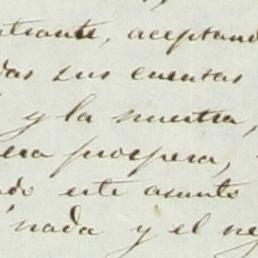 entrante, aceptando
das sus cuentas
y la nuestra,
era prospera,
ndo este asunto
nada y el ne